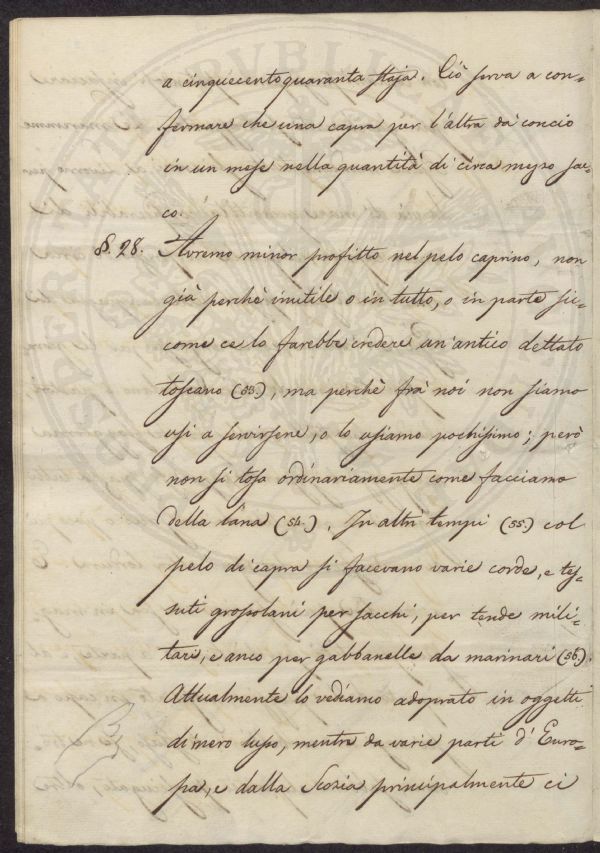 a cinquecentoquaranta staja. Ciò serva a con=
fermare che una capra per l'altra dà concio
in un mese nella quantità di circa mezzo sac=
co.
§. 28. Avremo minor profitto nel pelo caprino, non
già perchè inutile o in tutto, o in parte sic=
come ce lo farebbe credere un'antico dettato
toscano (53.), ma perchè frà noi non siamo
usi a servirsene, o lo usiamo pochissimo; però
non si tosa ordinariamente come facciamo
della lana (54.). In altri tempi (55.) col
pelo di capra si facevano varie corde, e tes=
suti grossolani per sacchi, per tende mili=
tari, e anco per gabbanelle da marinari (56.).
Attualmente lo vediamo adoprato in oggetti
di mero lusso, mentre da varie parti d'Euro=
pa, e dalla Scozia principalmente ci